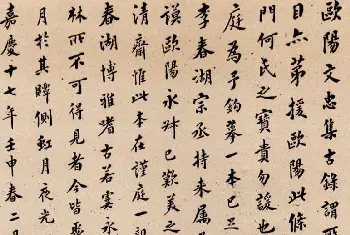 歐陽文忠集古錄謂所
目六弟援歐陽此條
門何氏之寶貴勿諼也
庭為予鉤摹一本已三
李春湖宗丞持來属
謨歐陽永叔已歎美之
清齋惟此本在謹庭一
春湖博雅嗜古若雲永
林所不可得見者今皆
月於其暉側虹月夜光
嘉慶十七年壬申春二